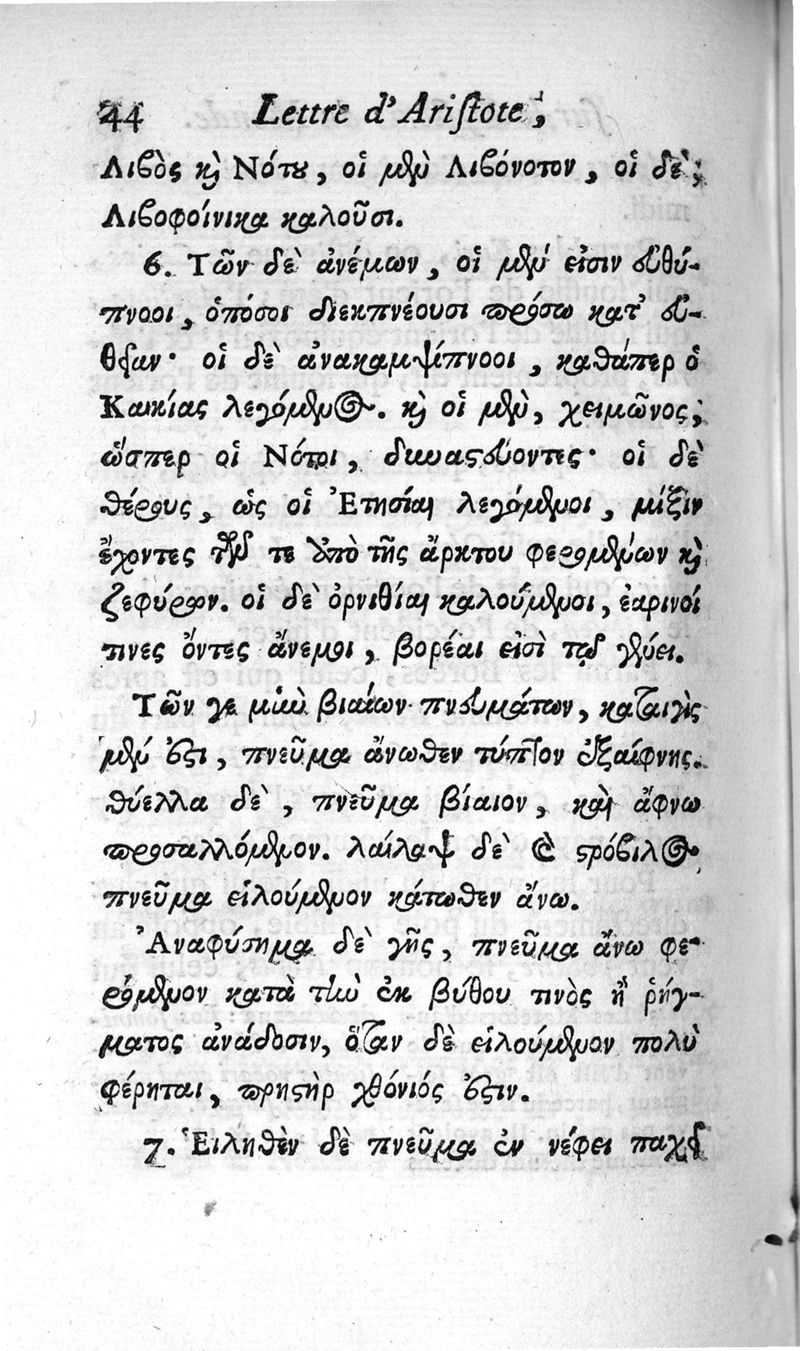 44 Lettre d'Aristote,
Λιβὸς κὶ Νότου, οἱ μὲν Λιβόνοτον, οἱ δὲ,
Λιβοφοίνικα καλοῦσι.
6. Τῶν δὲ ἀνέμων, οἱ μέν εἰσιν εὐθύ-
πνοοι, ὁπόσοι διεκπνέουσι πρόσω κατ' εὐ-
θεῖαν· οἱ δὲ ἀνακαμψίπνοοι, καθάπερ ὁ
Καικίας λεγόμενος. κὶ οἱ μὲν, χειμῶνος,
ὥσπερ οἱ Νότοι, δυναστεύοντες· οἱ δὲ
θέρους, ὡς οἱ Ἐτησίαι λεγόμενοι, μίξιν
ἔχοντες τῶν τε ὑπὸ τῆς ἄρκτου φερομένων κὶ
ζεφύρων. οἱ δὲ ὀρνιθίαι καλούμενοι, ἐαρινοί
τινες ὄντες ἄνεμοι, βορέαι εἰσὶ τῷ γένει.
Τῶν γε μὴν βιαίων πνευμάτων, καταιγὶς
μέν ἐστι, πνεῦμα ἄνωθεν τύπτον ἐξαίφνης.
θύελλα δὲ, πνεῦμα βίαιον, καὶ ἄφνω
προσαλλόμενον. λαίλαψ δὲ καὶ στρόβιλος
πνεῦμα εἰλούμενον κάτωθεν ἄνω.
Ἀναφύσημα δὲ γῆς, πνεῦμα ἄνω φε-
ρόμενον κατὰ τὴν ἐκ βύθου τινὸς ἢ ῥήγ-
ματος ἀνάδοσιν, ὅταν δὲ εἰλούμενον πολὺ
φέρηται, πρηστὴρ χθόνιός ἐστιν.
7. Εἱληθὲν δὲ πνεῦμα ἐν νέφει παχεῖ